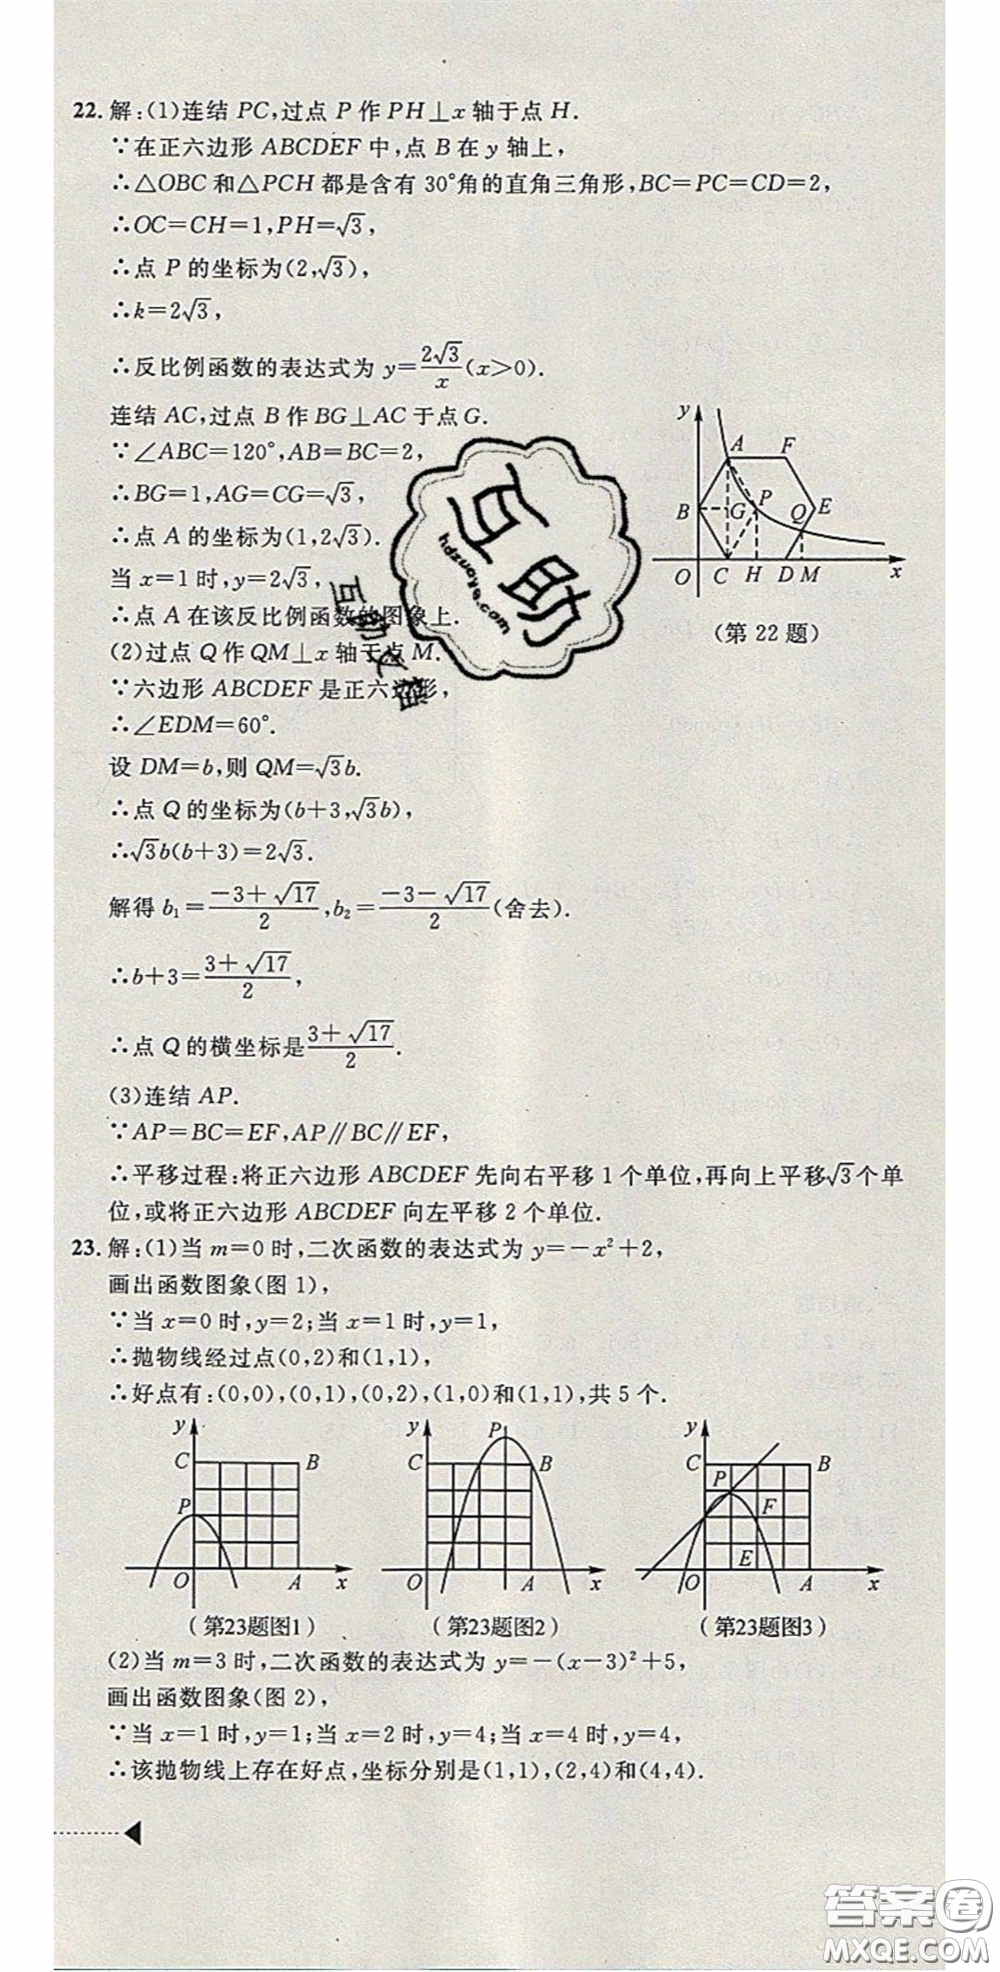 22. 解:(1)连结 PC,过点 P 作 PH⊥x 轴于点 H.
∵在正六边形 ABCDEF 中,点 B 在 y 轴上,
∴△OBC 和△PCH 都是含有 30°角的直角三角形,BC=PC=CD=2,
∴OC=CH=1,PH=√3,
∴点 P 的坐标为(2,√3),
∴k=2√3,
∴反比例函数的表达式为 y=2√3/x(x>0).
连结 AC,过点 B 作 BG⊥AC 于点 G.
∵∠ABC=120°,AB=BC=2,
∴BG=1,AG=CG=√3,
∴点 A 的坐标为(1,2√3).
当 x=1 时,y=2√3,
∴点 A 在该反比例函数的图象上.
(2)过点 Q 作 QM⊥x 轴于点 M.
∵六边形 ABCDEF 是正六边形,
∴∠EDM=60°.
设 DM=b,则 QM=√3b.
∴点 Q 的坐标为(b+3,√3b),
∴√3b(b+3)=2√3.
解得 b₁=(-3+√17)/2,b₂=(-3-√17)/2(舍去).
∴b+3=(3+√17)/2,
∴点 Q 的横坐标是(3+√17)/2.
(3)连结 AP.
∵AP=BC=EF,AP∥BC∥EF,
∴平移过程:将正六边形 ABCDEF 先向右平移 1 个单位,再向上平移√3个单
位,或将正六边形 ABCDEF 向左平移 2 个单位.
y A F B G P Q E O C H D M x
(第 22 题)
互助
hdzuoye.com
互助文档
23. 解:(1)当 m=0 时,二次函数的表达式为 y=-x²+2,
画出函数图象(图 1),
∵当 x=0 时,y=2;当 x=1 时,y=1,
∴抛物线经过点(0,2)和(1,1),
∴好点有:(0,0),(0,1),(0,2),(1,0)和(1,1),共 5 个.
y C B P O A x
(第23题图1)
y P C B O A x
(第23题图2)
y C B P F E O A x
(第23题图3)
(2)当 m=3 时,二次函数的表达式为 y=-(x-3)²+5,
画出函数图象(图 2),
∵当 x=1 时,y=1;当 x=2 时,y=4;当 x=4 时,y=4,
∴该抛物线上存在好点,坐标分别是(1,1),(2,4)和(4,4).
答案圈
MXQE.COM